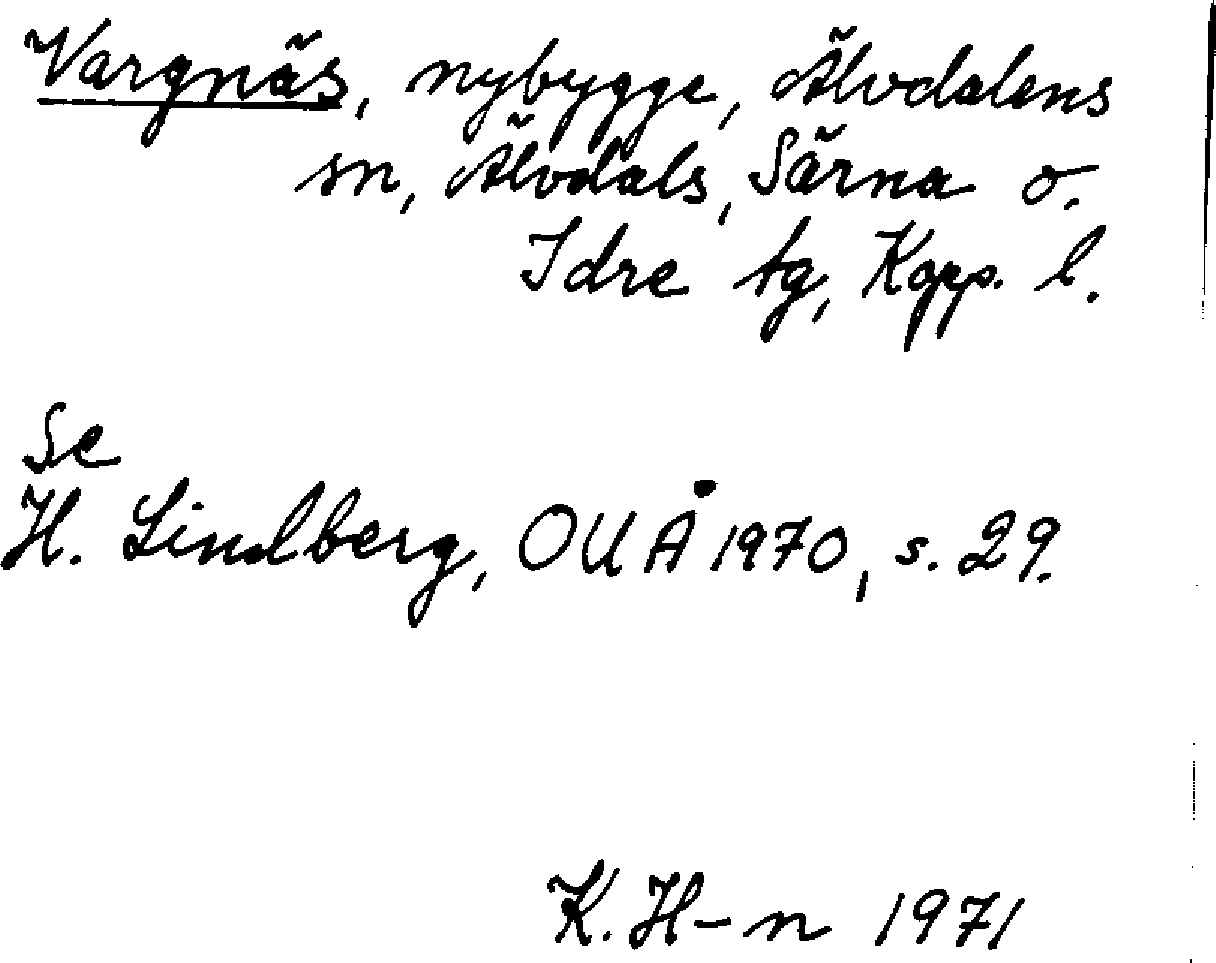 Vargnäs, nybygge, Älvdalens
sn, Älvdals, Särna o.
Idre tg, Kopp. l.
Se
H. Lindberg, OUÅ 1970, s. 29.
K. H-n 1971